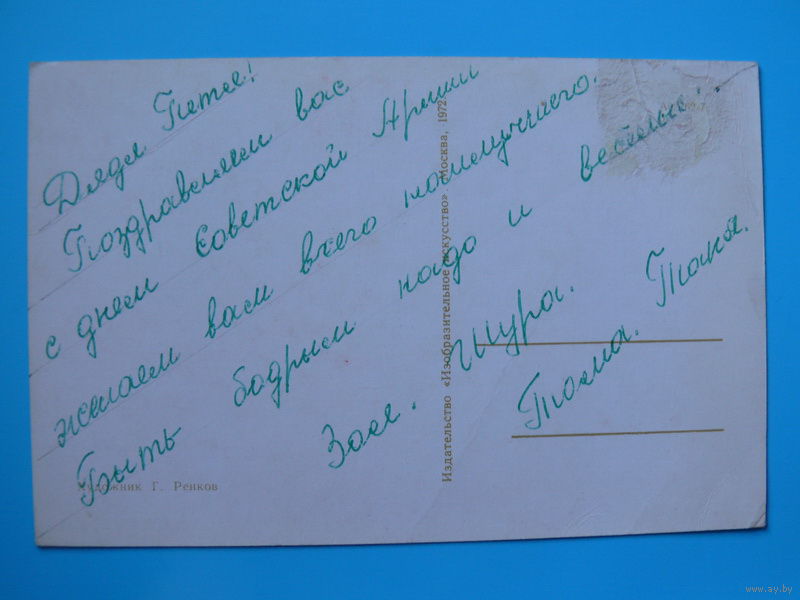 Дядя Петя!
Поздравляем вас
с днем Советской Армии
желаем вам всего наилучшего.
Быть бодрым надо и
Зоя. Шура.
Тома. Таня.
Художник Г. Ренков
Издательство «Изобразительное искусство» Москва, 1972
www.ay.by